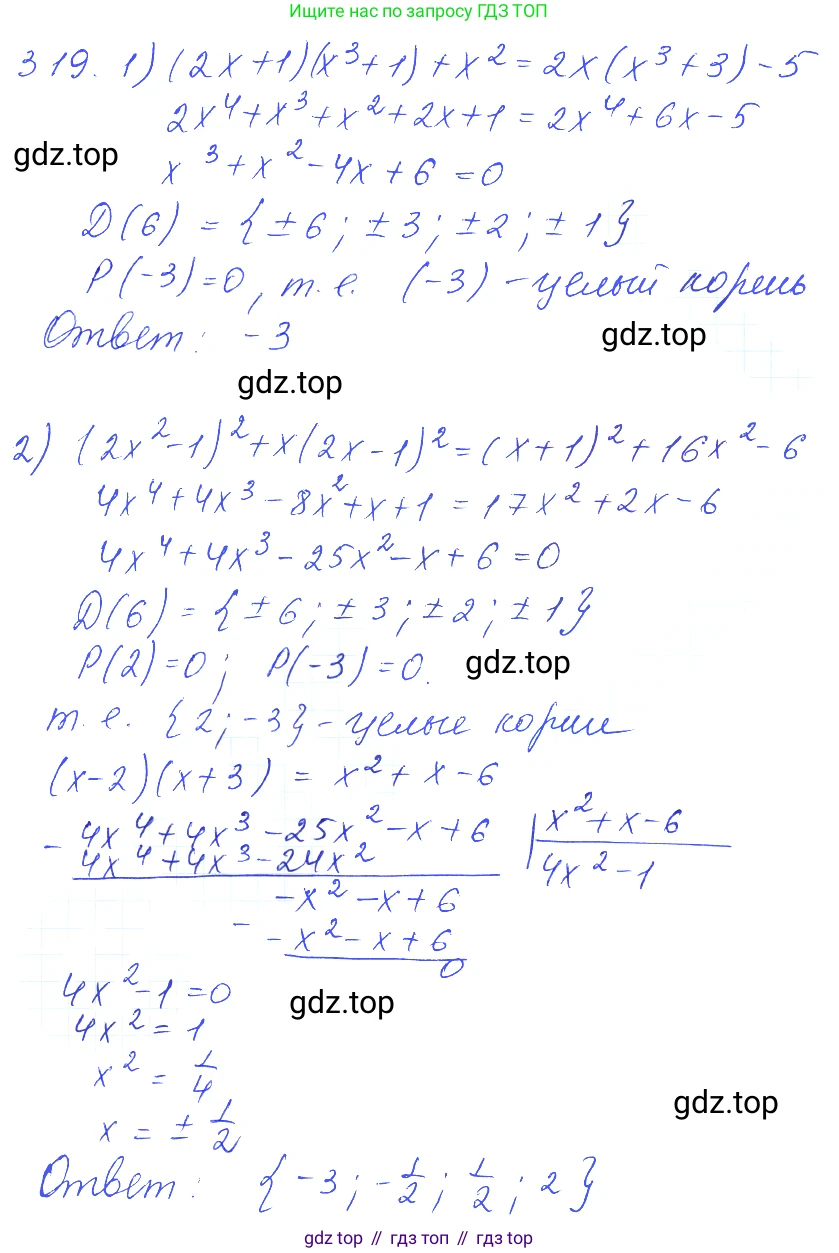 Ищите нас по запросу ГДЗ ТОП
319. 1) (2x+1)(x³+1)+x²=2x(x³+3)-5
2x⁴+x³+x²+2x+1=2x⁴+6x-5
gdz.top
x³+x²-4x+6=0
D(6) = {±6; ±3; ±2; ±1}
P(-3)=0, т.е. (-3) - целый корень
Ответ: -3
gdz.top
gdz.top
2) (2x²-1)²+x(2x-1)²=(x+1)²+16x²-6
4x⁴+4x³-8x²+x+1=17x²+2x-6
4x⁴+4x³-25x²-x+6=0
D(6)={±6; ±3; ±2; ±1}
P(2)=0; P(-3)=0.
gdz.top
т.е. {2; -3} - целые корни
(x-2)(x+3) = x²+x-6
- 4x⁴+4x³-25x²-x+6 | x²+x-6
4x⁴+4x³-24x² 4x²-1
-x²-x+6
- -x²-x+6
0
4x²-1=0
gdz.top
4x²=1
x²=1/4
gdz.top
x=±1/2
Ответ: {-3; -1/2; 1/2; 2}
gdz.top // гдз топ // gdz top